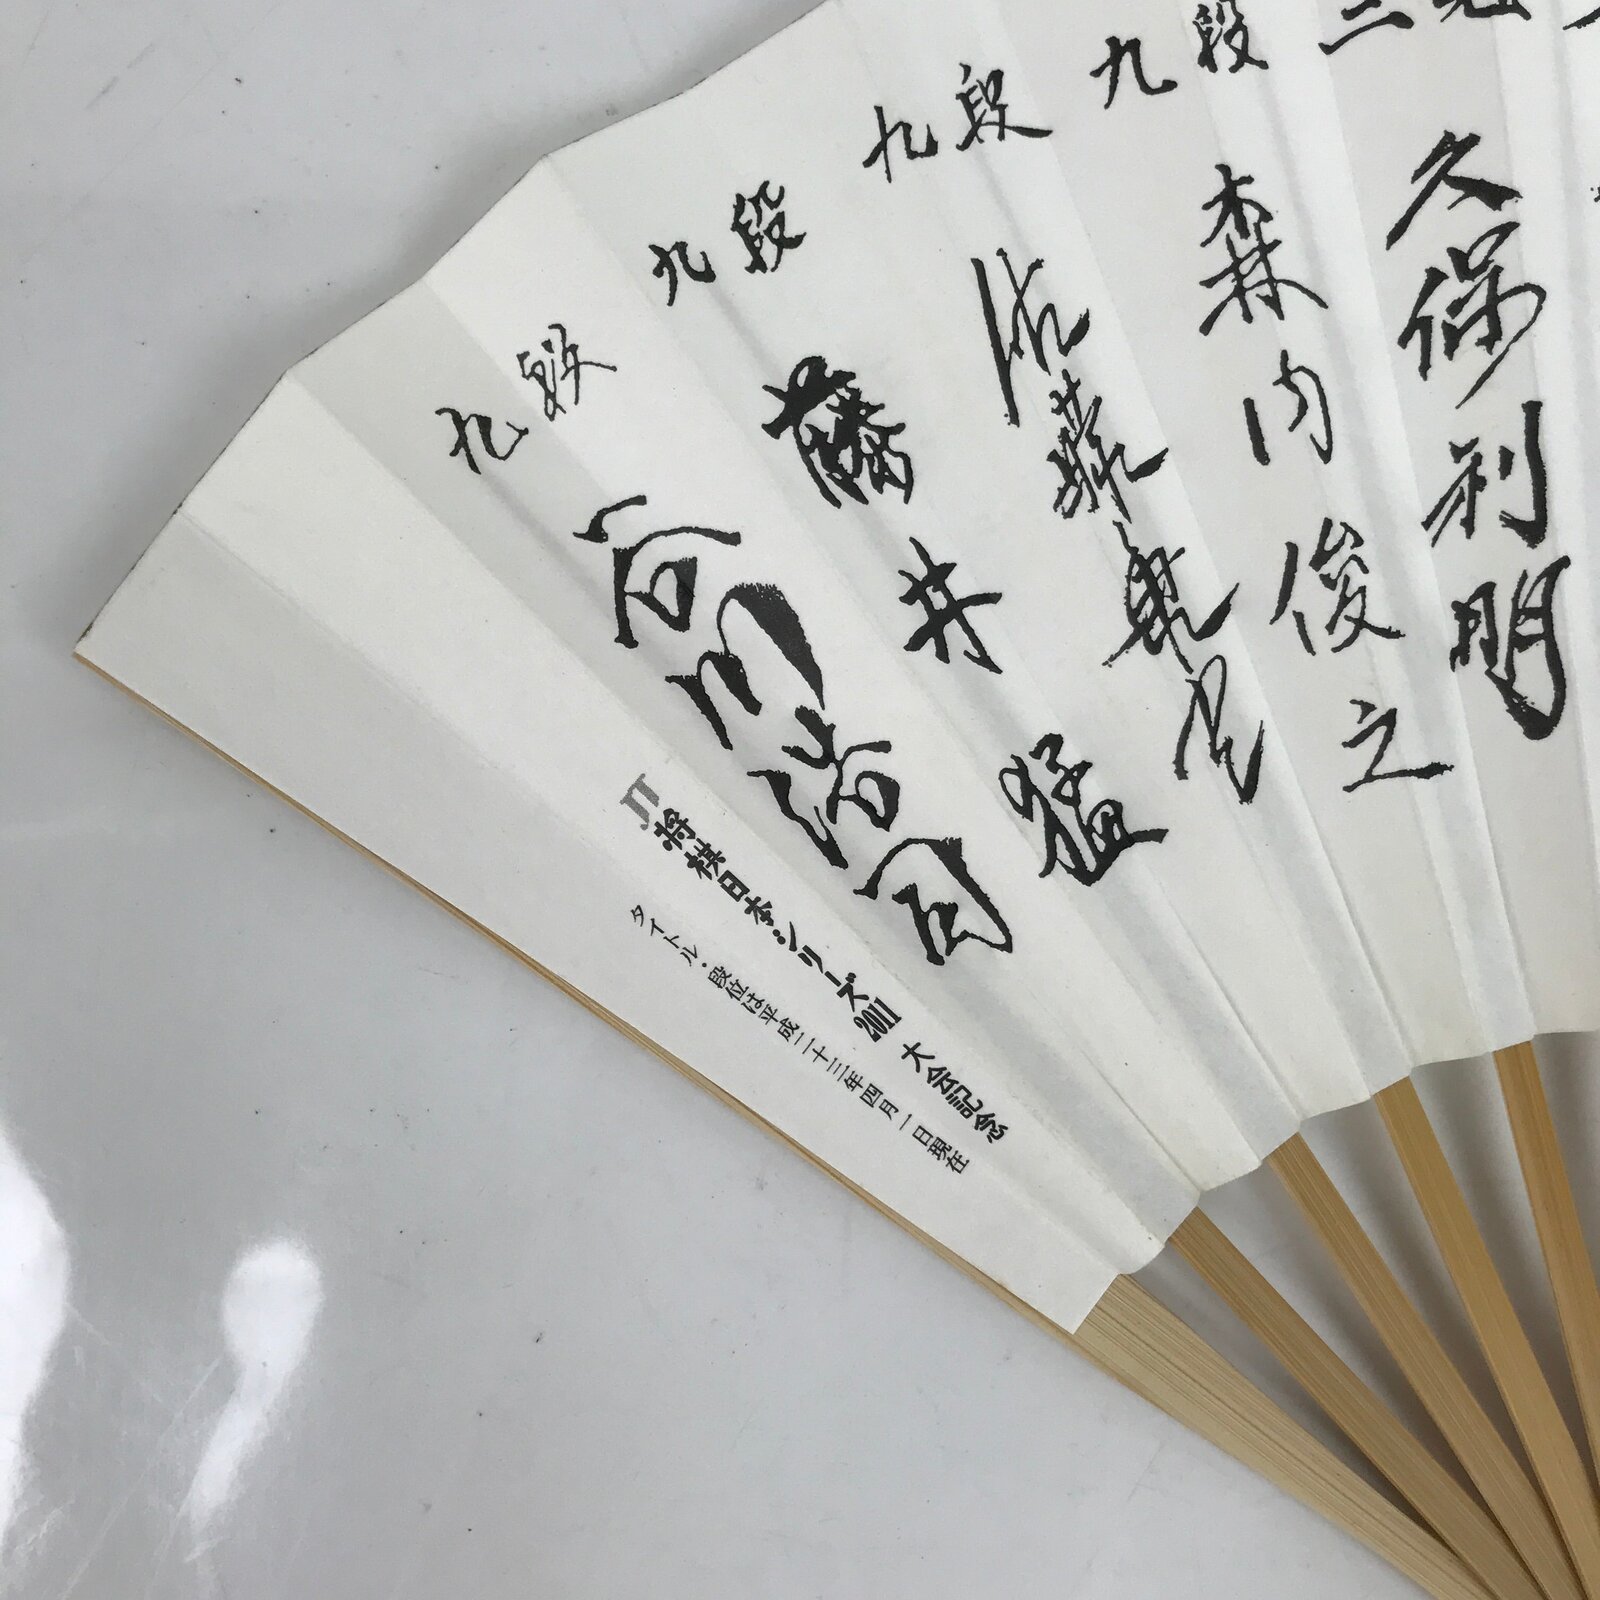 久保利明
九段 森内俊之
九段 佐藤康光
九段 藤井猛
九段 谷川浩司
JT将棋日本シリーズ2011 大会記念
タイトル・段位は平成二十三年四月一日現在